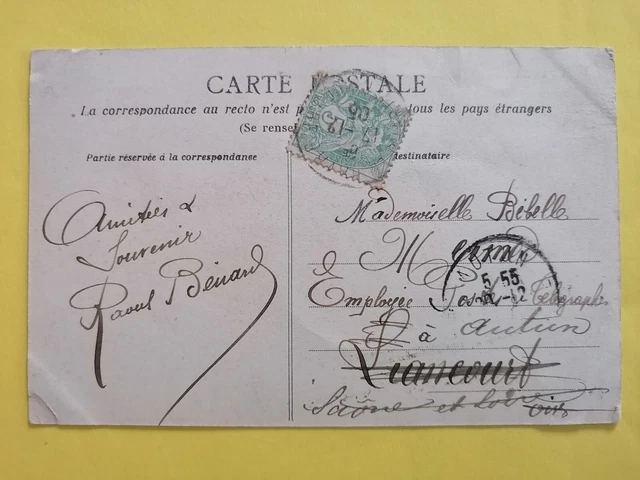 CARTE POSTALE
La correspondance au recto n'est p tous les pays étrangers
(Se rense
Partie réservée à la correspondance
destinataire
Amitiés &
Souvenir
Raoul Bénard
Mademoiselle Bébelle
Employée Télégraphe
à Autun
Liancourt
Saône et Loire Oise
5 55
12